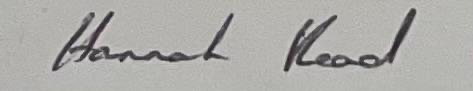 Hannah Read